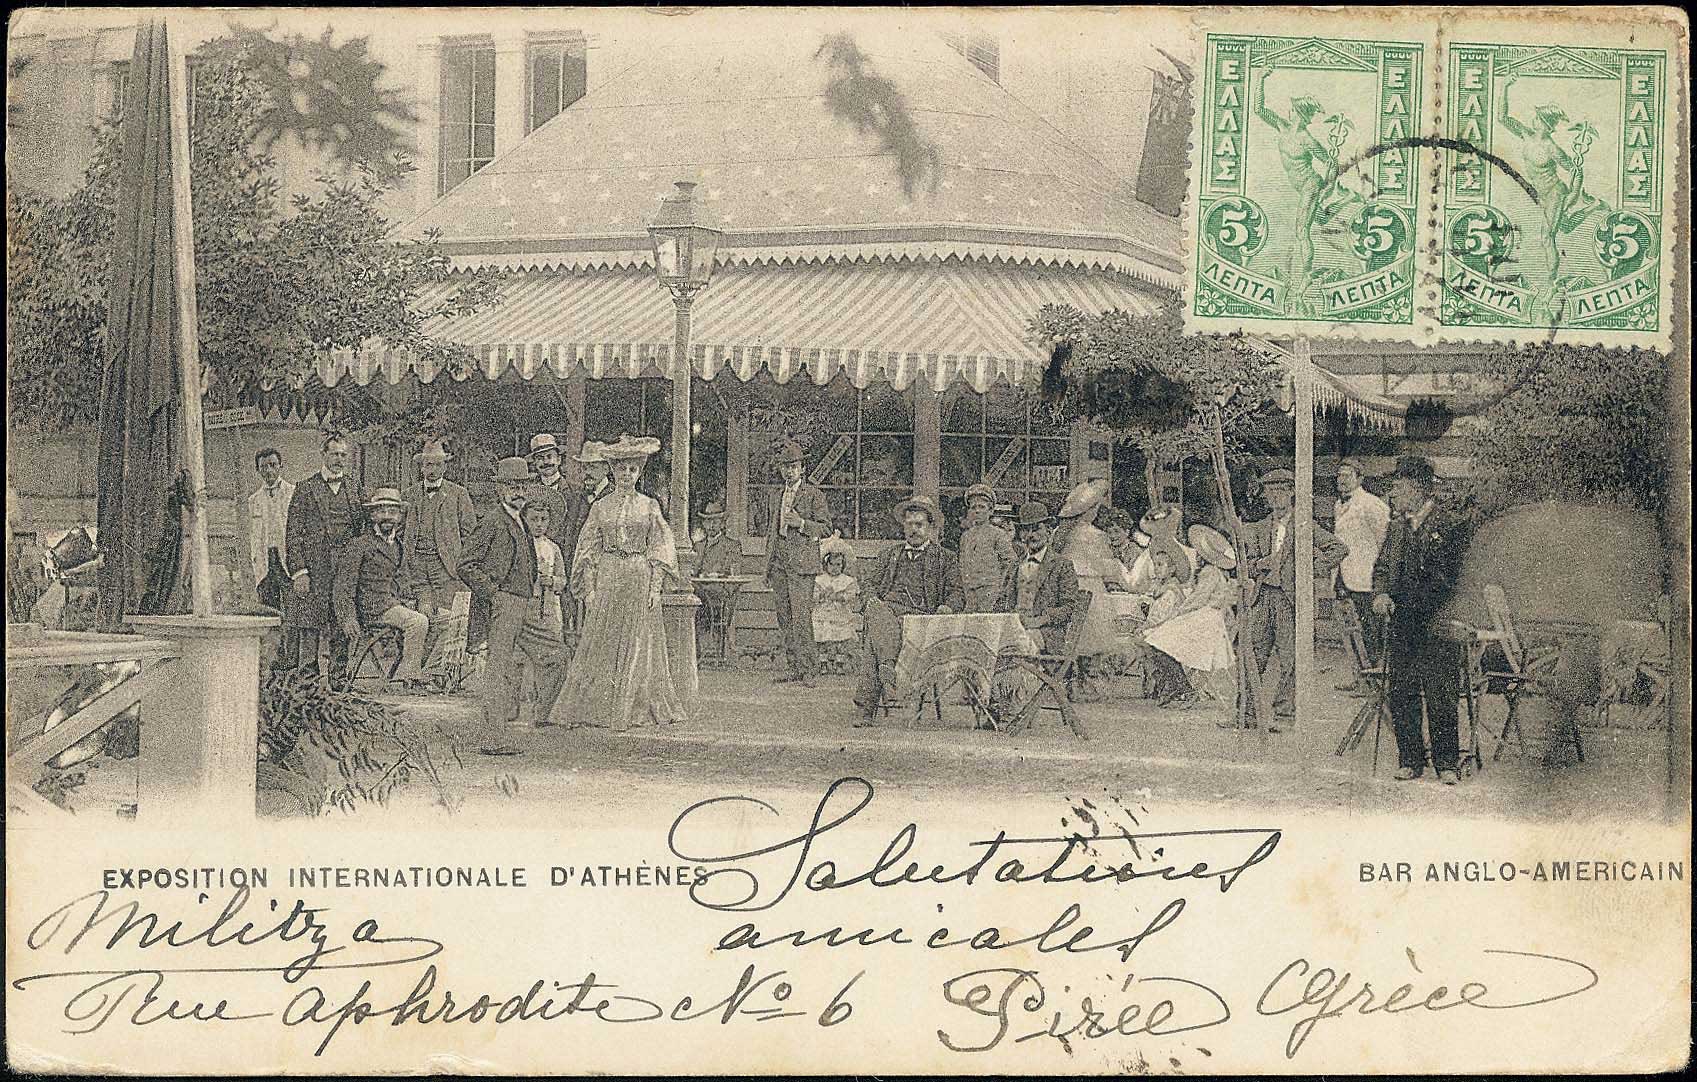 ΕΛΛΑΣ ΕΛΛΑΣ
5 5
ΛΕΠΤΑ ΛΕΠΤΑ
ΕΛΛΑΣ ΕΛΛΑΣ
5 5
ΛΕΠΤΑ ΛΕΠΤΑ
EXPOSITION INTERNATIONALE D'ATHÈNES
BAR ANGLO-AMERICAIN
Salutations
amicales
Militza
Rue Aphrodite No 6 Pirée Grèce